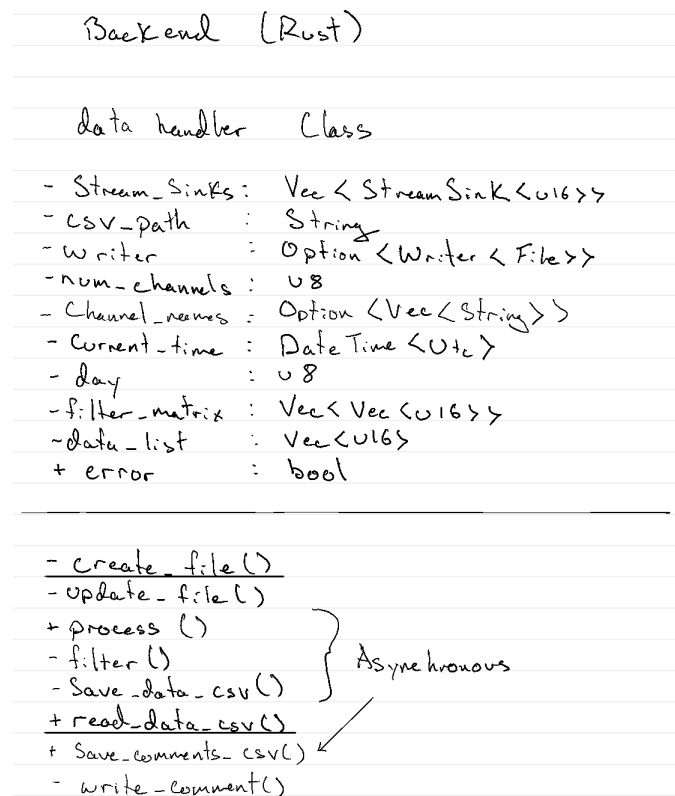 Backend (Rust)
data handler Class
- Stream_Sinks: Vec < StreamSink <u16>>
- csv_path : String
- writer : Option <Writer < File>>
- num_channels : u8
- Channel_names : Option <Vec< String>>
- Current_time : DateTime <Utc>
- day : u8
- filter_matrix : Vec< Vec <u16>>
- data_list : Vec<u16>
+ error : bool
- create_file()
- update_file()
+ process ()
- filter()
- Save_data_csv()
Asynchronous
+ read_data_csv()
+ Save_comments_csv()
- write_comment()